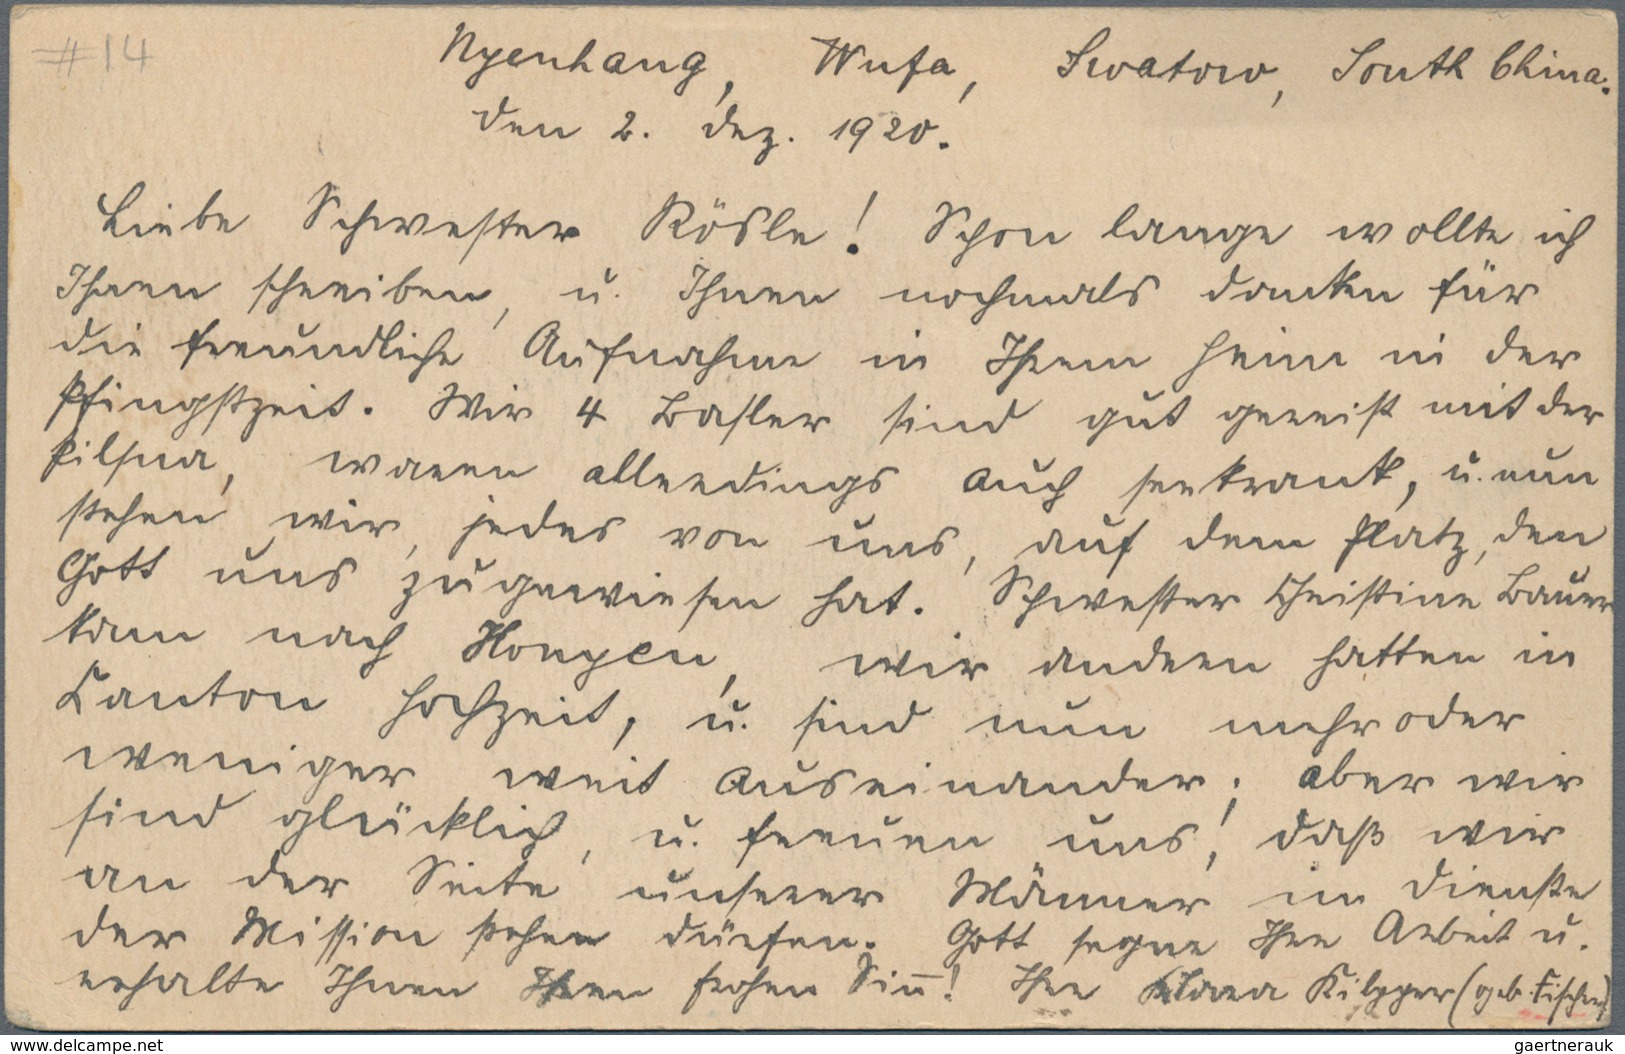 #14
Nyenhang, Wufa, Swatow, South China.
den 2. Dez. 1920.
Liebe Schwester Rösle! Schon lange wollte ich
Ihnen schreiben, u. Ihnen nochmals danken für
die freundliche Aufnahme in Ihrem Heim in der
Pfingstzeit. Wir 4 Basler sind gut gereist mit der
Pilsna, waren allerdings auch seekrank, u. nun
stehen wir, jedes von uns, auf dem Platz, den
Gott uns zugewiesen hat. Schwester Christine Bauer
kam nach Honyen, wir andern hatten in
Canton Hochzeit, u. sind nun mehr oder
weniger weit auseinander; aber wir
sind glücklich, u. freuen uns, daß wir
an der Seite unserer Männer im Dienste
der Mission stehen dürfen. Gott segne Ihre Arbeit u.
erhalte Ihnen Ihren frohen Sinn! Ihre Klara Kilpper (geb. Fischer)
www.delcampe.net
gaertnerauk